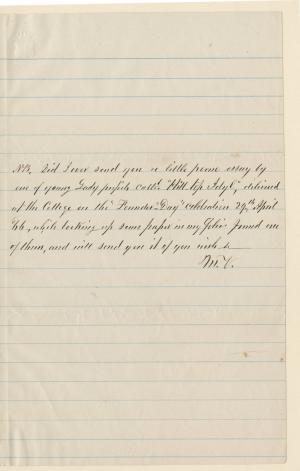 N.B. Did I ever send you a little prose essay by
one of young Lady pupils call'd "Hill top Idyl", delivered
at the College on the "Founders Day" celebration 29th April
/66, while looking up some papers in my folio found one
of them, and will send you it if you wish it
M.V.